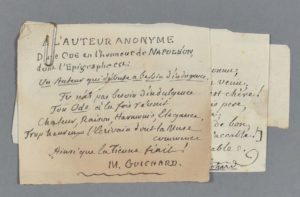 A L'AUTEUR ANONYME
D'une ODE en l'honneur de NAPOLÉON,
dont l'Epigraphe est:
Un Auteur qui débute a besoin d'indulgence.
Tu n'as pas besoin d'indulgence
Ton Ode à la fois réunit
Chaleur, Raison, Harmonie, Elégance,
Trop heureux l'Ecrivain dont la Muse
commence
Ainsi que la Tienne finit!
M. GUICHARD.